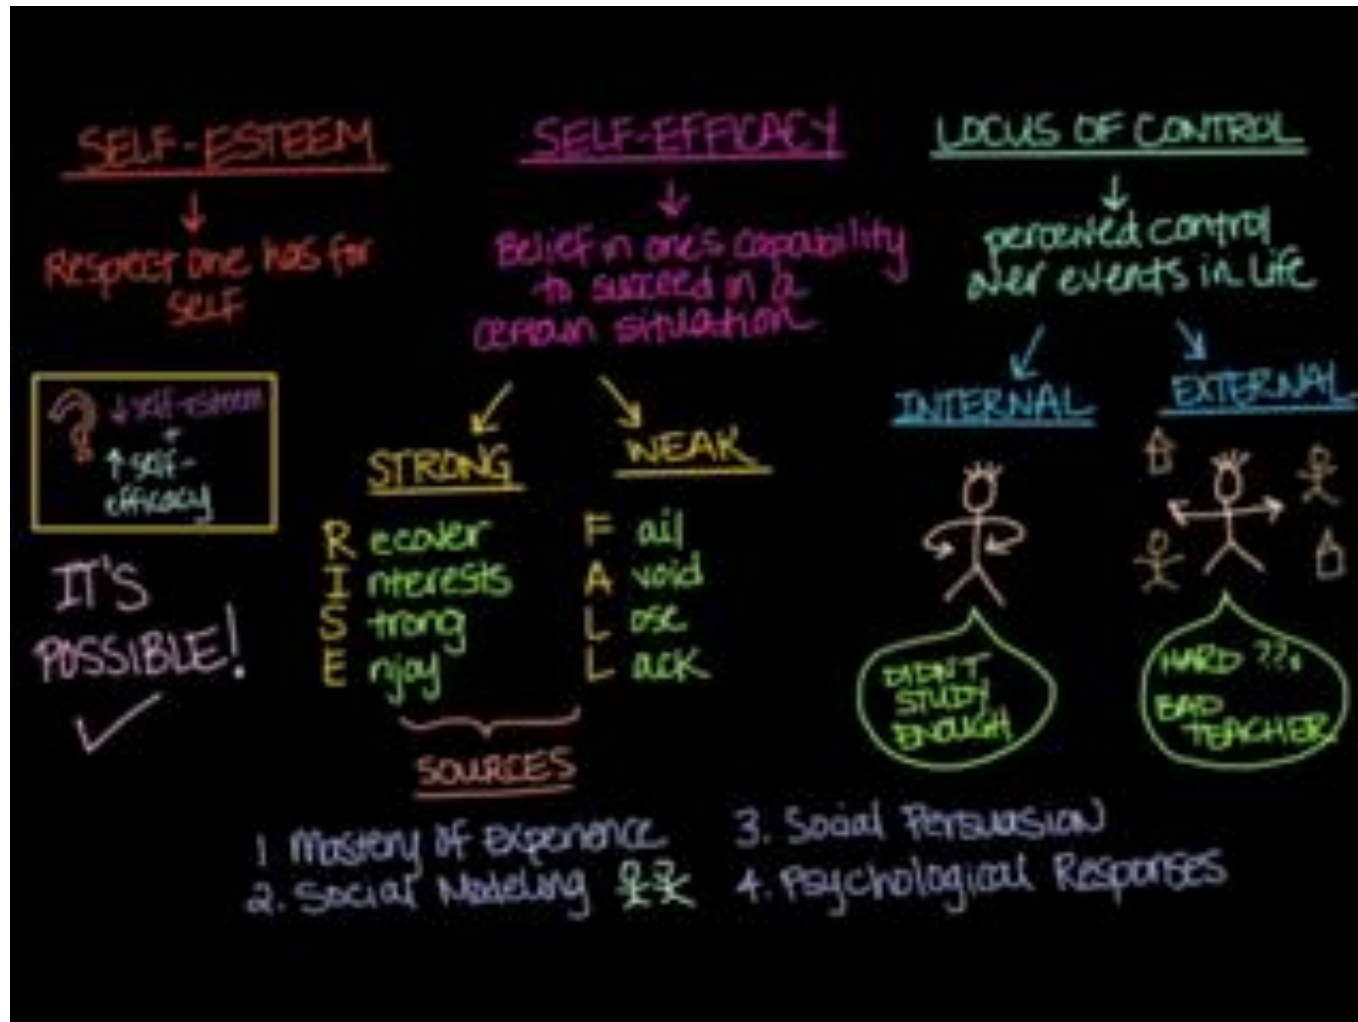 SELF-ESTEEM
Respect one has for
self
↓ self-esteem
+
↑ self-
efficacy
IT'S
POSSIBLE!
SELF-EFFICACY
Belief in one's capability
to succeed in a
certain situation
STRONG
Recover
Interests
Strong
Enjoy
WEAK
Fail
Avoid
Lose
Lack
SOURCES
1 Mastery of Experience
2. Social Modeling
3. Social Persuasion
4. Psychological Responses
LOCUS OF CONTROL
perceived control
over events in life
INTERNAL
DIDN'T
STUDY
ENOUGH
EXTERNAL
HARD ??s
BAD
TEACHER